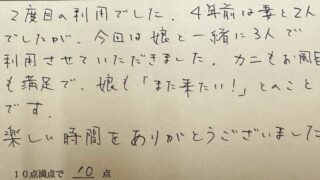 2度目の利用でした。4年前は妻と2人
でしたが、今回は娘と一緒に3人で
利用させていただきました。カニもお風呂
も満足で、娘も「また来たい!」とのこと
です。
楽しい時間をありがとうございました
10点満点で 10 点